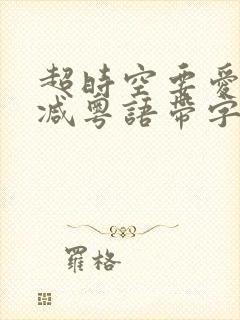 超時空要愛
减粤語帶字
羅格